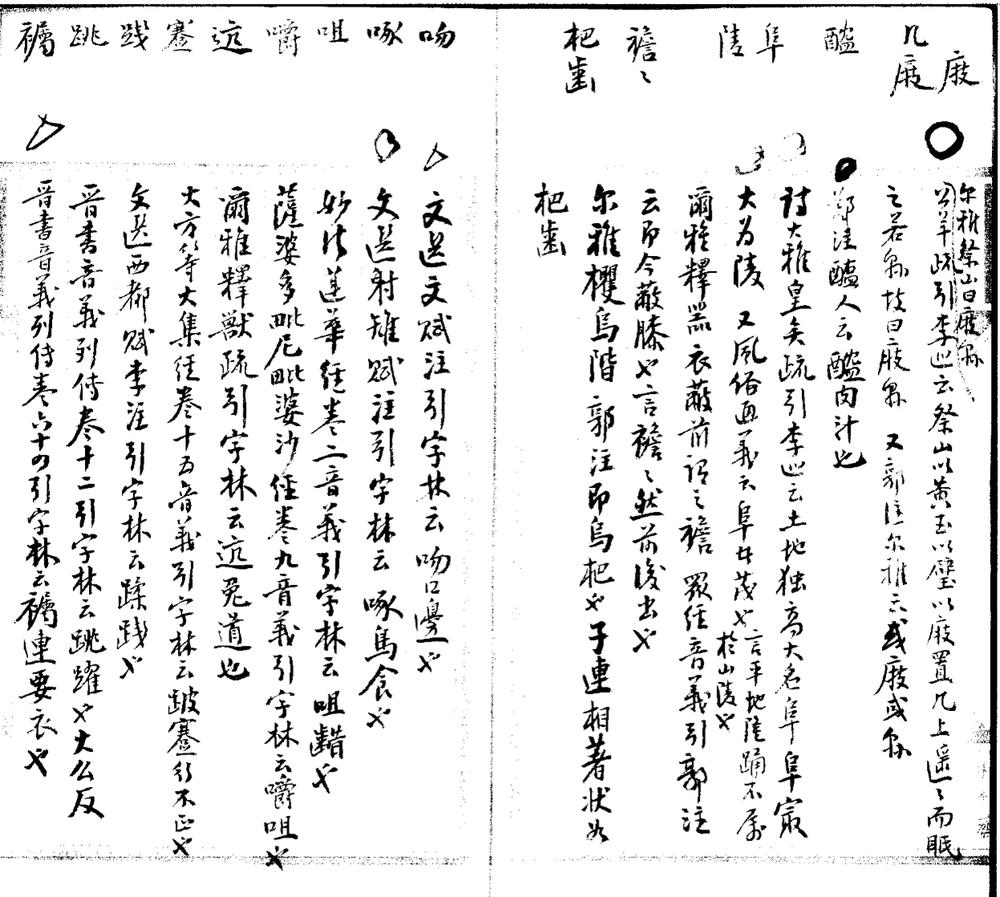 庪
几庪
醢
阜
陵
襜〻
杷齒
尔雅祭山曰庪縣
公羊疏引李巡云祭山以黃玉以璧以庪置几上遥〻而眡
之若縣故曰庪縣 又郭注尔雅云或庪或縣
鄭注醢人云醢肉汁也
詩大雅皇矣疏引李巡云土地独高大名阜阜最
大为陵 又風俗通義云阜者茂也言平地隆踊不属於山陵也
爾雅釋器衣蔽前謂之襜 眾経音義引郭注
云即今蔽膝也言襜〻然前後出也
尔雅欋烏階 郭注即烏杷也子連相著状如
杷齒
吻
啄
咀
嚼
迒
蹇
践
跳
襡
文选文赋注引字林云吻口邊也
文选射雉赋注引字林云啄鳥食也
妙法蓮華経卷二音義引字林云咀齰也
薩婆多毗尼毗婆沙経卷九音義引字林云嚼咀也
爾雅釋獸疏引字林云迒兔道也
大方等大集経卷十五音義引字林云跛蹇行不正也
文选西都赋李注引字林云蹂践也
晋書音義列傳卷十二引字林云跳躍也大么反
晋書音義列傳卷六十四引字林云襡連要衣也